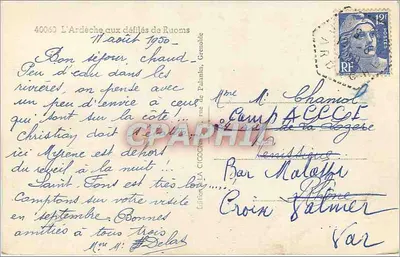 40060 L'Ardèche aux défilés de Ruoms
11 août 1950
Bon séjour, chaud
Peu d'eau dans les
rivières, on pense avec
un peu d'envie à ceux
qui sont sur la côte
Christian doit
ici Myrene est dehors
du réveil à la nuit !!
Saint Fons est très loin
Comptons sur votre visite
en septembre. Bonnes
amitiés à tous trois
Mme Mr Delas
12F
RF
Mme Mr Chamiot
Camp ACCCF
de la Logère
Bar Malaffi
Rhône
Croix Valmer
Var
CPAPHIL.COM